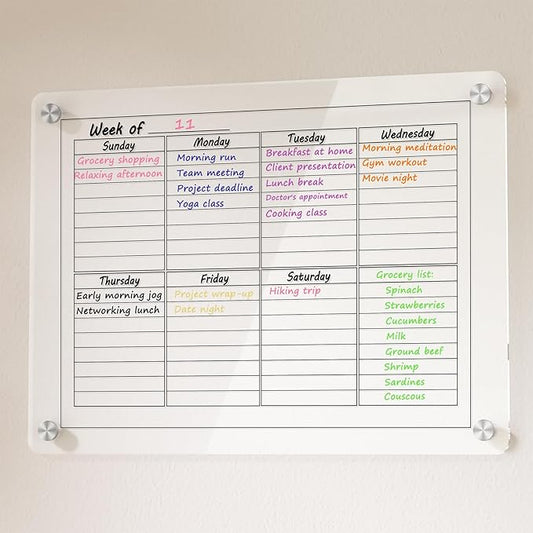 Week of 11
Sunday
Grocery shopping
Relaxing afternoon
Monday
Morning run
Team meeting
Project deadline
Yoga class
Tuesday
Breakfast at home
Client presentation
Lunch break
Doctor's appointment
Cooking class
Wednesday
Morning meditation
Gym workout
Movie night
Thursday
Early morning jog
Networking lunch
Friday
Project wrap-up
Date night
Saturday
Hiking trip
Grocery list:
Spinach
Strawberries
Cucumbers
Milk
Ground beef
Shrimp
Sardines
Couscous